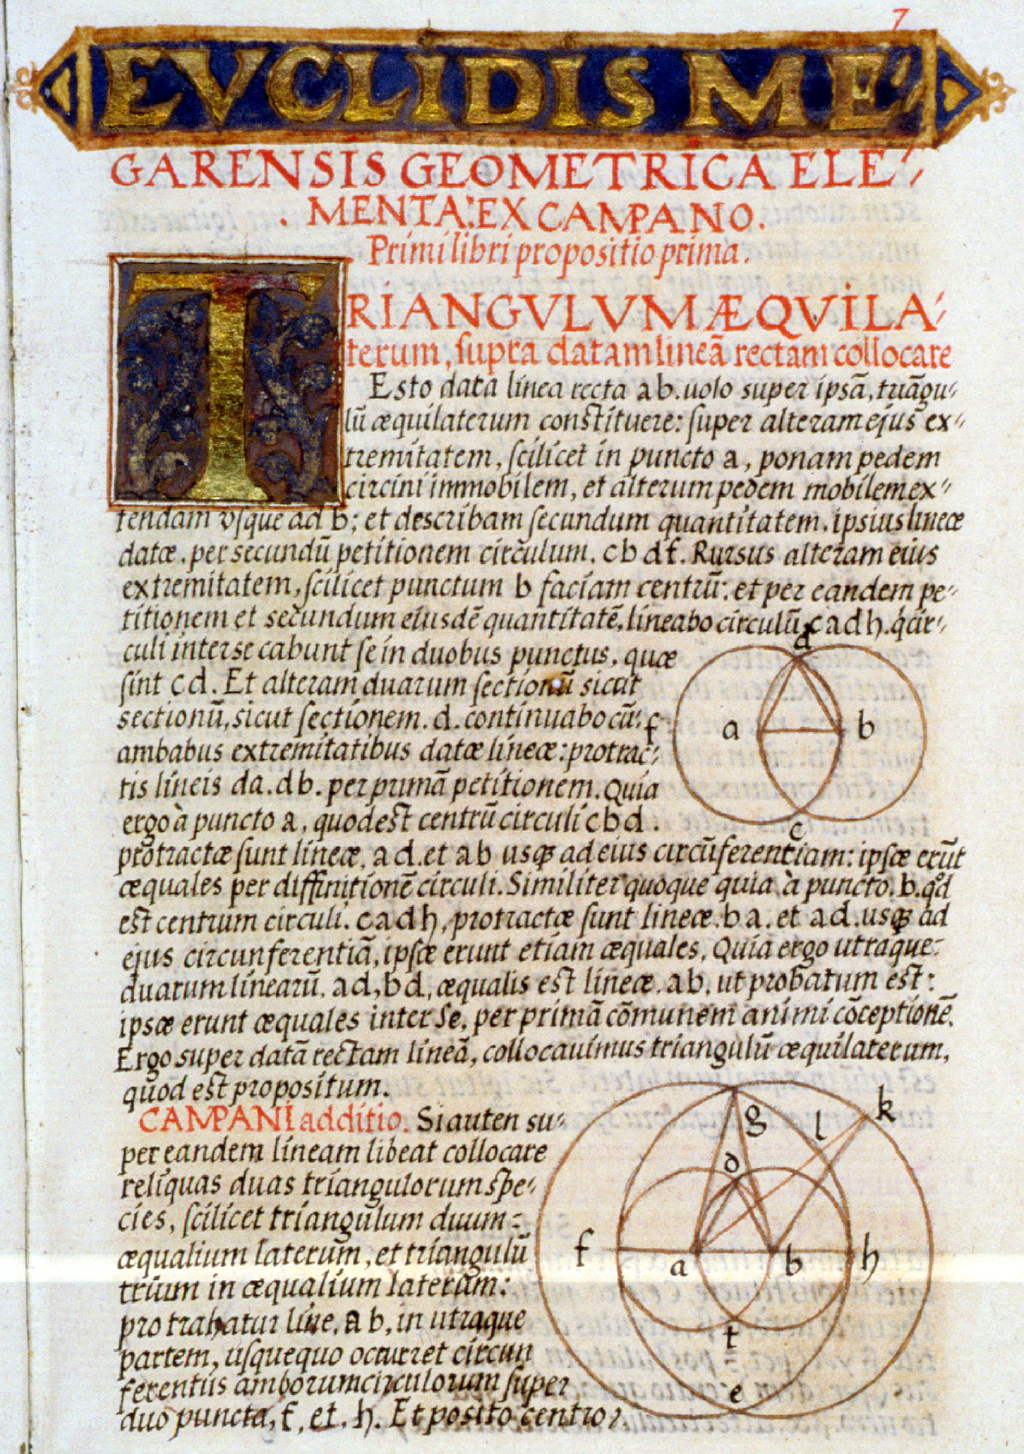 7
EVCLIDIS ME⸗
GARENSIS GEOMETRICA ELE⸗
. MENTA: EX CAMPANO.
Primi libri propositio prima.
TRIANGVLVM ÆQVILA⸗
terum, supra datam lineã rectam collocare
Esto data linea recta ab. uolo super ipsã, triãgu⸗
lũ æquilaterum constituere: super alteram ejus ex⸗
tremitatem, scilicet in puncto a, ponam pedem
circini immobilem, et alterum pedem mobilem ex⸗
tendam vsque ad b; et describam secundum quantitatem. ipsius lineæ
datæ. per secundũ petitionem circulum. cbdf. Rursus alteram eius
extremitatem, scilicet punctum b faciam centrũ: et per eandem pe⸗
titionem et secundum eiusdẽ quantitatẽ, lineabo circulũ cadh. q̃ cir⸗
culi inter se cabunt se in duobus punctus, quæ
sint cd. Et alteram duarum sectionũ sicut
sectionũ, sicut sectionem. d. continuabo cũ
ambabus extremitatibus datæ lineæ: protrac⸗
tis lineis da. db. per primã petitionem. Quia
ergo à puncto a, quod est centrũ circuli cbd.
protractæ sunt lineæ. ad. et ab usq; ad eius circũferentiam: ipsæ erũt
æquales per diffinitionẽ circuli. Similiter quoque quia à puncto. b. qd
est centrum circuli. cadh, protractæ sunt lineæ. ba. et ad. usq; ad
ejus circunferentiã, ipsæ erunt etiam æquales, Quia ergo utraque:
duarum linearũ. ad, bd, æqualis est lineæ. ab, ut probatum est:
ipsæ erunt æquales inter se, per primã cõmunem animi cõceptionẽ.
Ergo super datã rectam lineã, collocauimus triangulũ æquilaterum,
quod est propositum.
d
f
a
b
c
CAMPANI additio. Si auten su⸗
per eandem lineam libeat collocare
reliquas duas triangulorum spe⸗
cies, scilicet triangulum duum⸗
æqualium laterum, et triangulũ
trium in æqualium laterum:
protrahatur line, ab, in utraque
partem, usquequo occurret circun
ferentiis amborum circulorum super
duo puncta, f, et. h. Et posito centro,
g
l
k
d
f
a
b
h
t
e